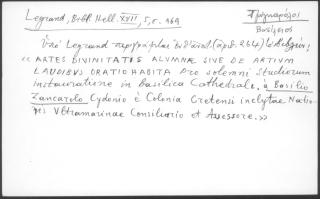 Legrand, Bibl. Hell. XVII, 5, σ. 169
Βασίλειος
Ὑπό Legrand περιγράφεται (ἀρ. 264)
« ARTES DIVINITATIS ALUMNÆ SIVE DE ARTIUM
LAUDIBUS ORATIO HABITA Pro solemni Studiorum
instauratione in Basilica Cathedrale, a Basilio
Zancarolo Cydonio è Colonia Cretensi inclytae Natio-
nis Ultramarinae Consiliario et Assessore. »